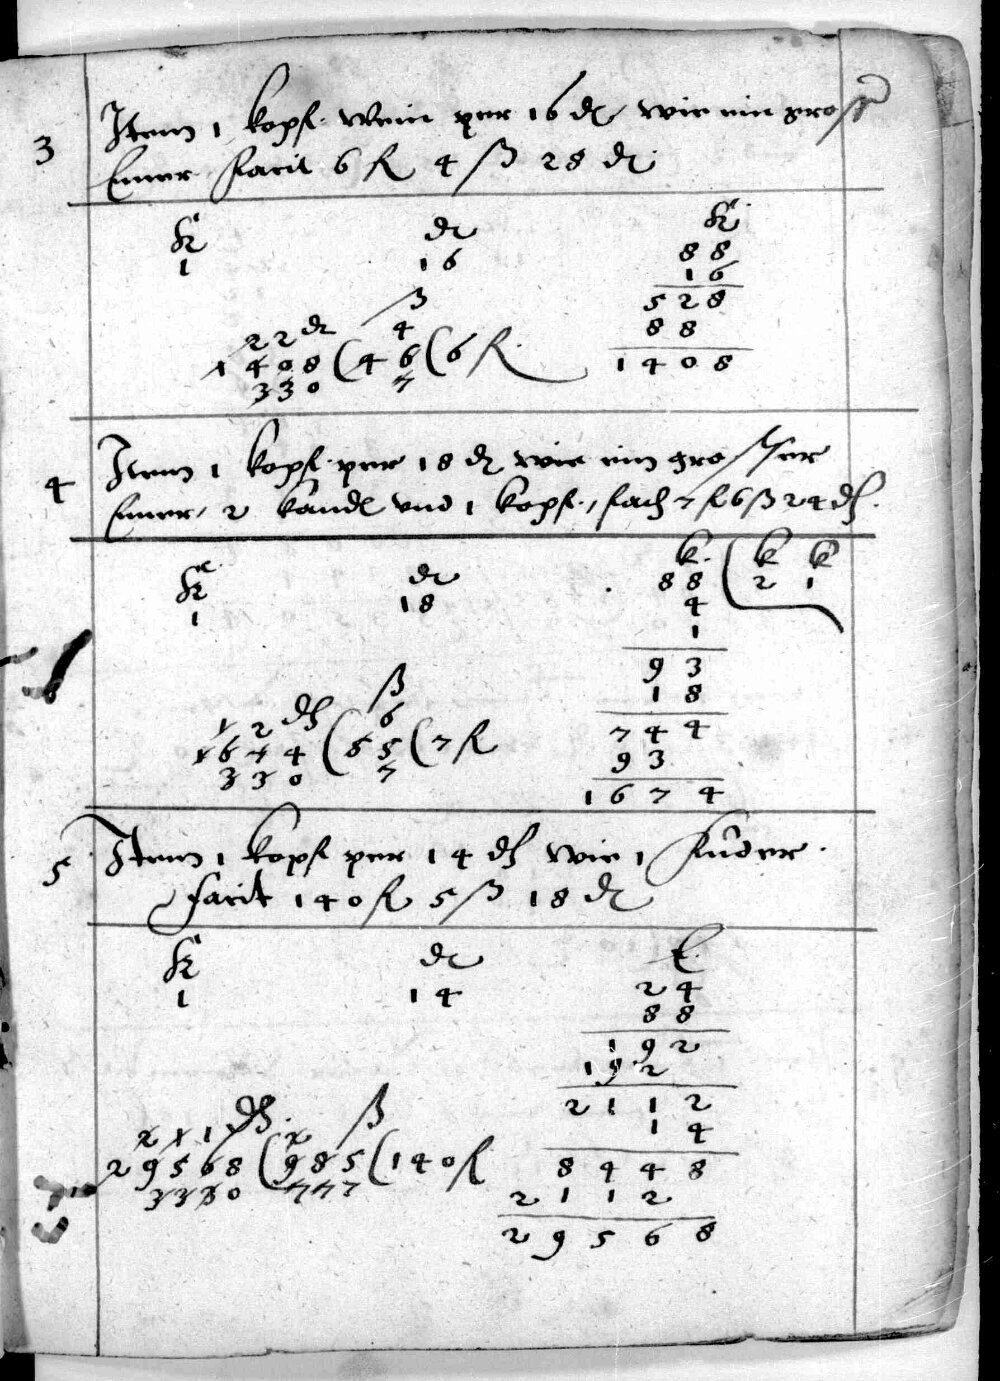 3 Item 1 kopf wein per 16 ₰ wie ein gross
Emer facit 6 fl 4 ß 28 ₰
k ₰ k
1 16 88
16
528
88
1408
ß
22 ₰ 4
1408 ( 46 ( 6 fl
330 7
4 Item 1 kopf per 18 ₰ wie ein grosser
Emer, 2 kandl vnd 1 kopf, fach 7 fl 6 ß 24 ₰.
k ₰ k ( k k
1 18 88 2 1
4
1
93
18
744
93
1674
ß
1 2 ₰ 6
1674 ( 55 ( 7 fl
330 7
5 Item 1 kopf per 14 ₰ wie 1 Fuder.
facit 140 fl 5 ß 18 ₰
k ₰ E
1 14 24
88
192
192
2112
14
8448
2112
29568
₰ ß
2 1 1 2
29568 ( 985 ( 140 fl
3330 777